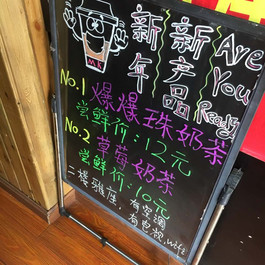 新年
新产品
Are You Ready
No.1 爆爆珠奶茶
尝鲜价:12元
No.2 草莓奶茶
尝鲜价:10元
二楼雅座,有空调
有电视,wifi